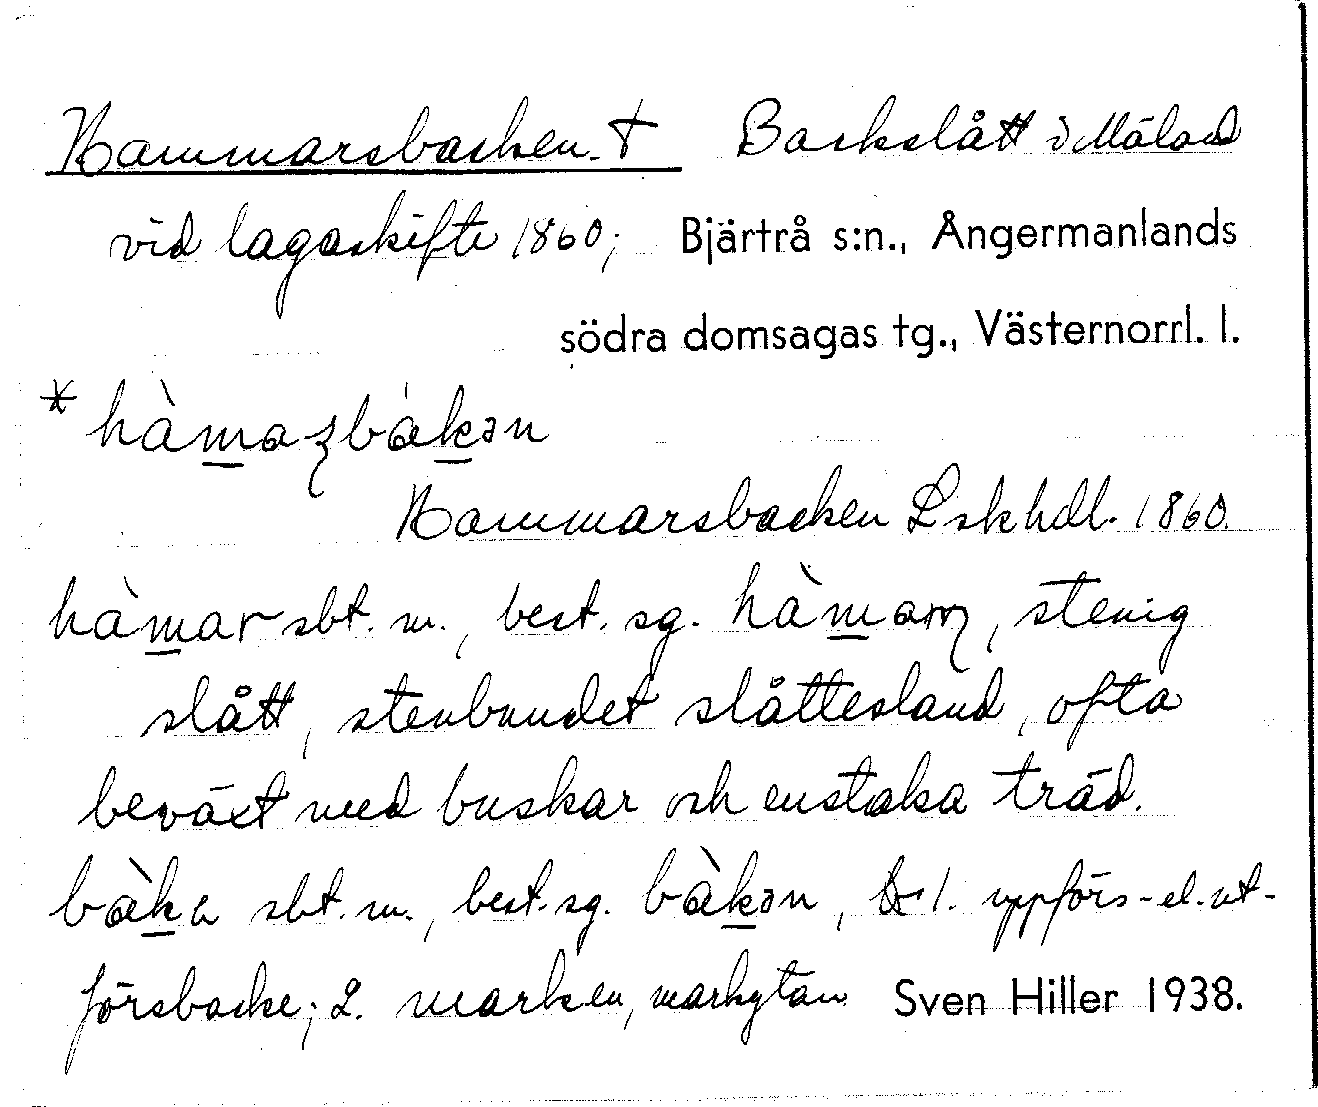 Hammarsbacken † Backslått i Målad
vid lagaskifte 1860; Bjärtrå s:n., Ångermanlands
södra domsagas tg., Västernorrl. l.
* hàmaʂbàkən
Hammarsbacken Lskhdl. 1860.
hàmar sbt. m., best. sg. hàmaɳ, stenig
slått, stenbundet slåttesland, ofta
beväxt med buskar och enstaka träd.
bàka sbt. m., best. sg. bàkən, 1. uppförs- el. ut-
försbacke; 2. marken, markytan Sven Hiller 1938.